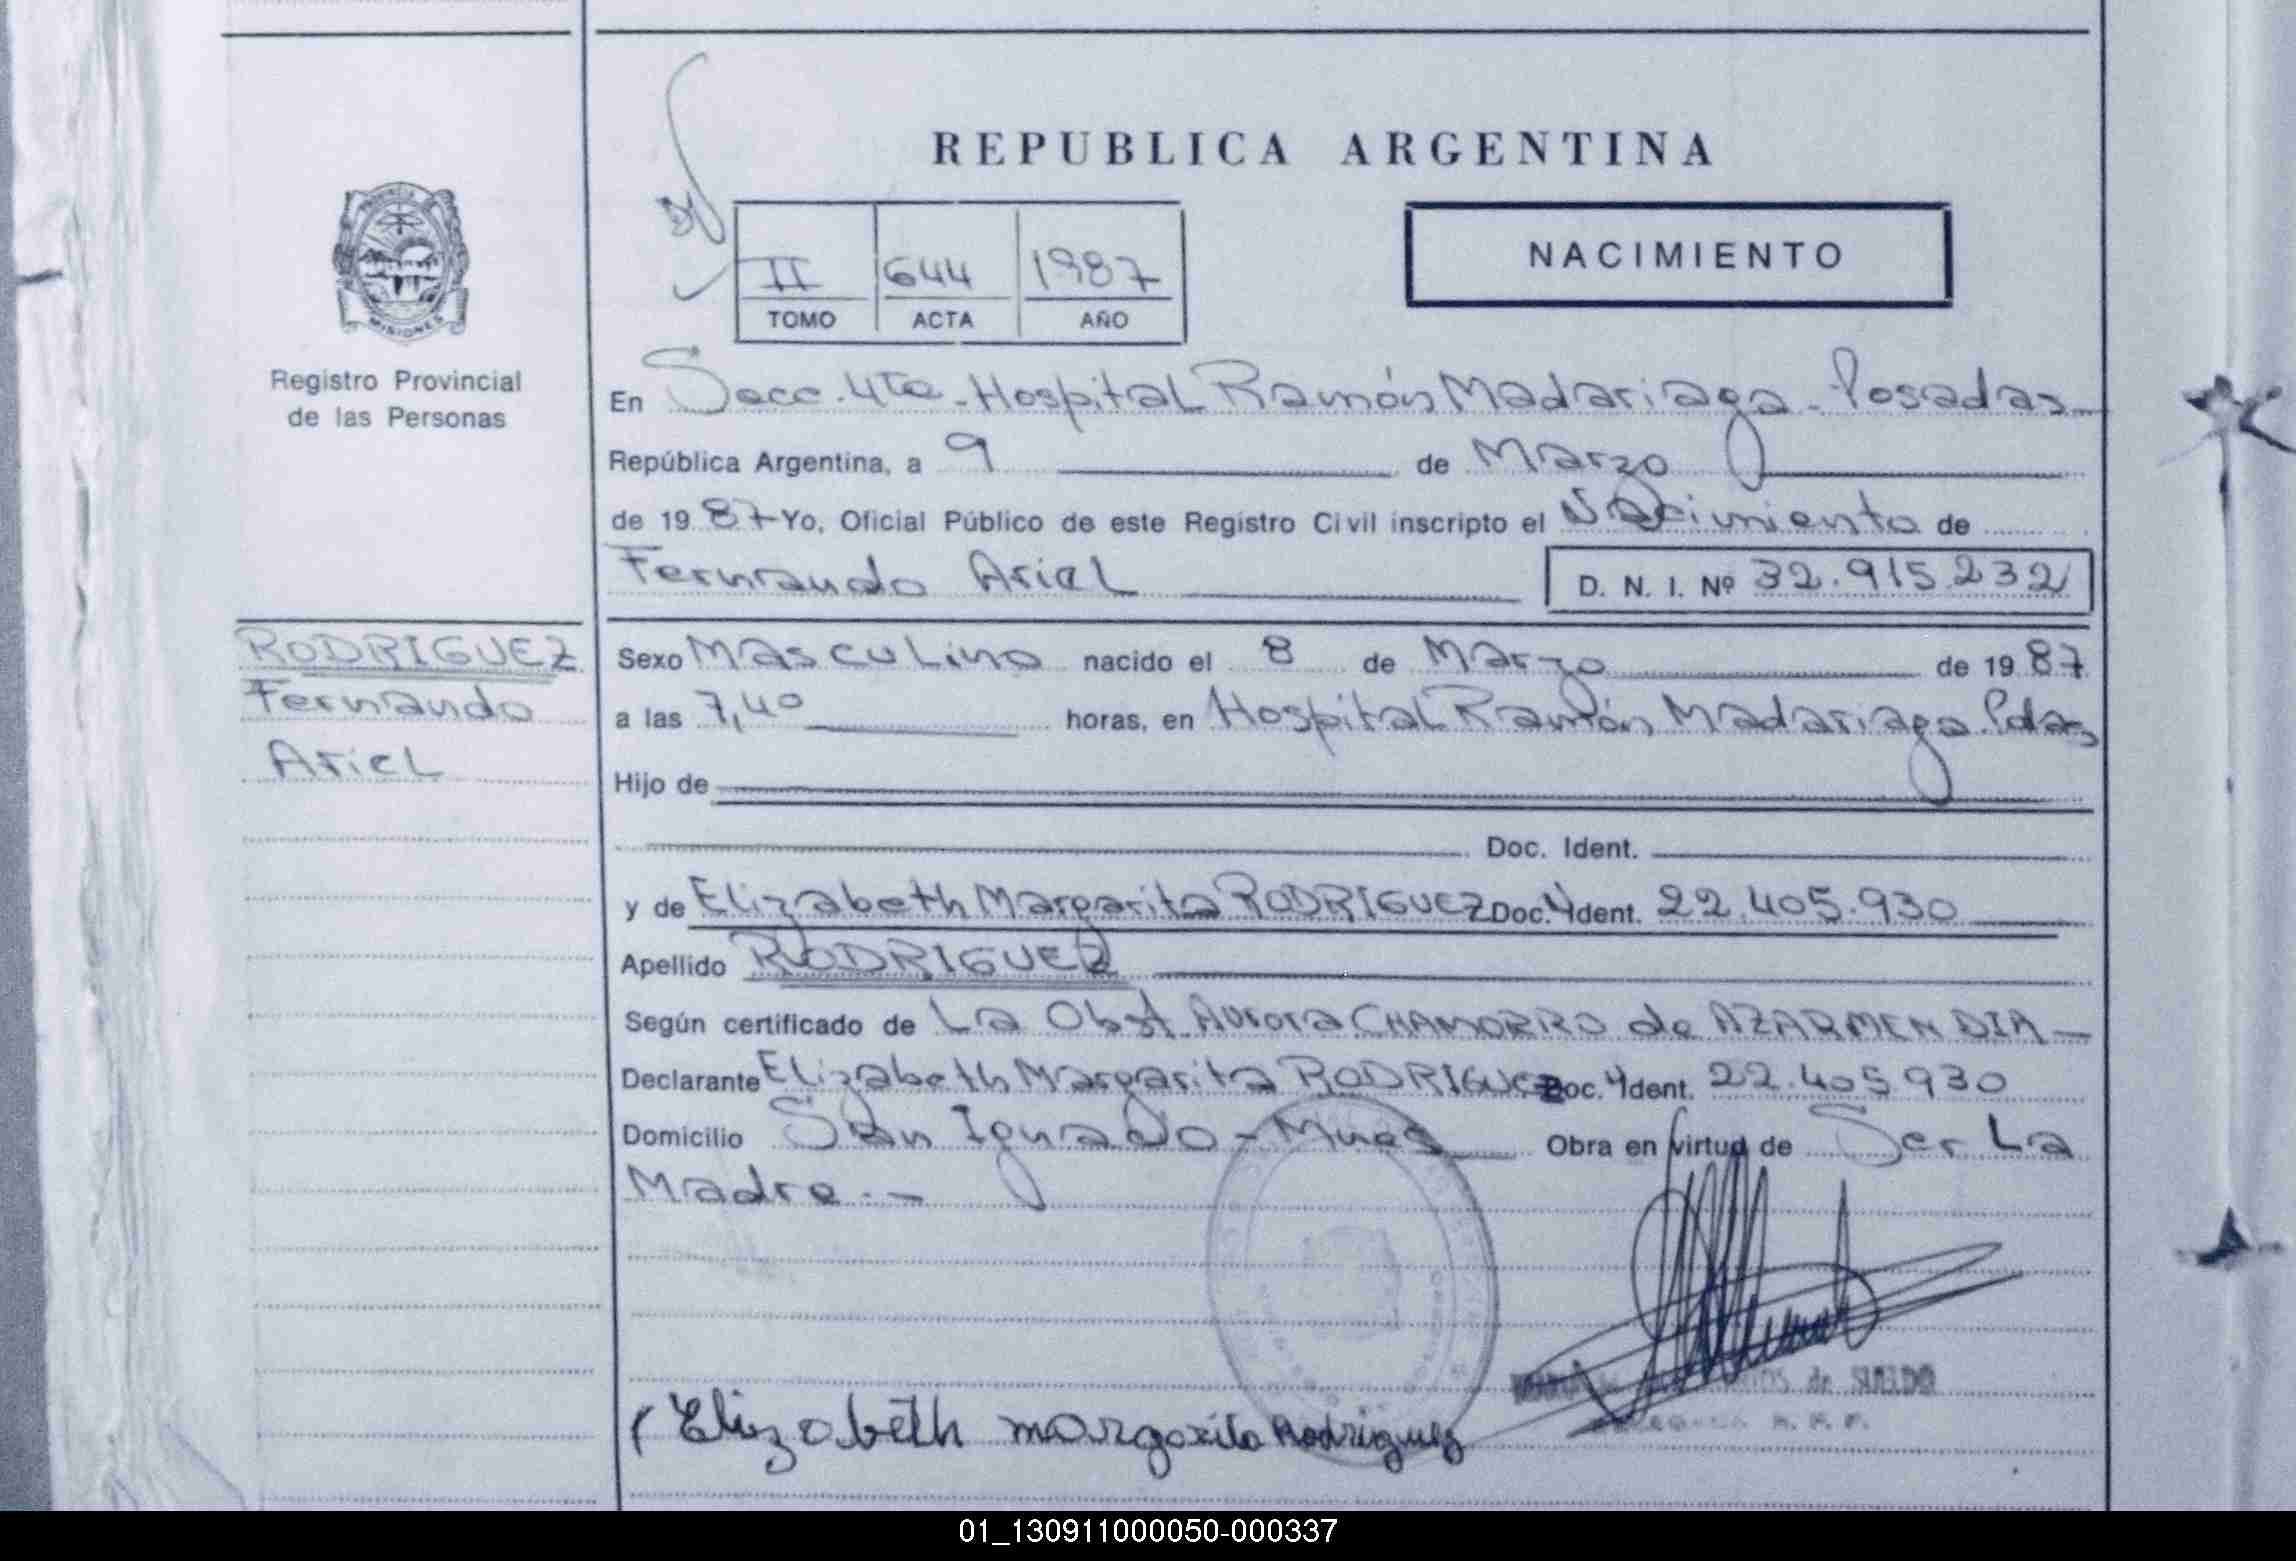 REPUBLICA ARGENTINA
NACIMIENTO
II 644 1987
TOMO ACTA AÑO
PROVINCIA DE
MISIONES
Registro Provincial
de las Personas
En Secc. 4ta - Hospital Ramón Madariaga - Posadas
República Argentina, a 9 de Marzo
de 1987 Yo, Oficial Público de este Registro Civil inscripto el Nacimiento de
Fernando Ariel
D. N. I. Nº 32.915.232
RODRIGUEZ
Fernando
Ariel
Sexo Masculino nacido el 8 de Marzo de 1987
a las 7,40 horas, en Hospital Ramón Madariaga. Pdas
Hijo de
Doc. Ident.
y de Elizabeth Margarita RODRIGUEZ Doc. Ident. 22.405.930
Apellido RODRIGUEZ
Según certificado de La Obst. Aurora CHAMORRO de AZARMENDIA -
Declarante Elizabeth Margarita RODRIGUEZ Doc. Ident. 22.405.930
Domicilio San Ignacio - Mnes Obra en virtud de Ser La
Madre. -
de
R. P. P.
Elizabeth margarita Rodriguez
01_130911000050-000337